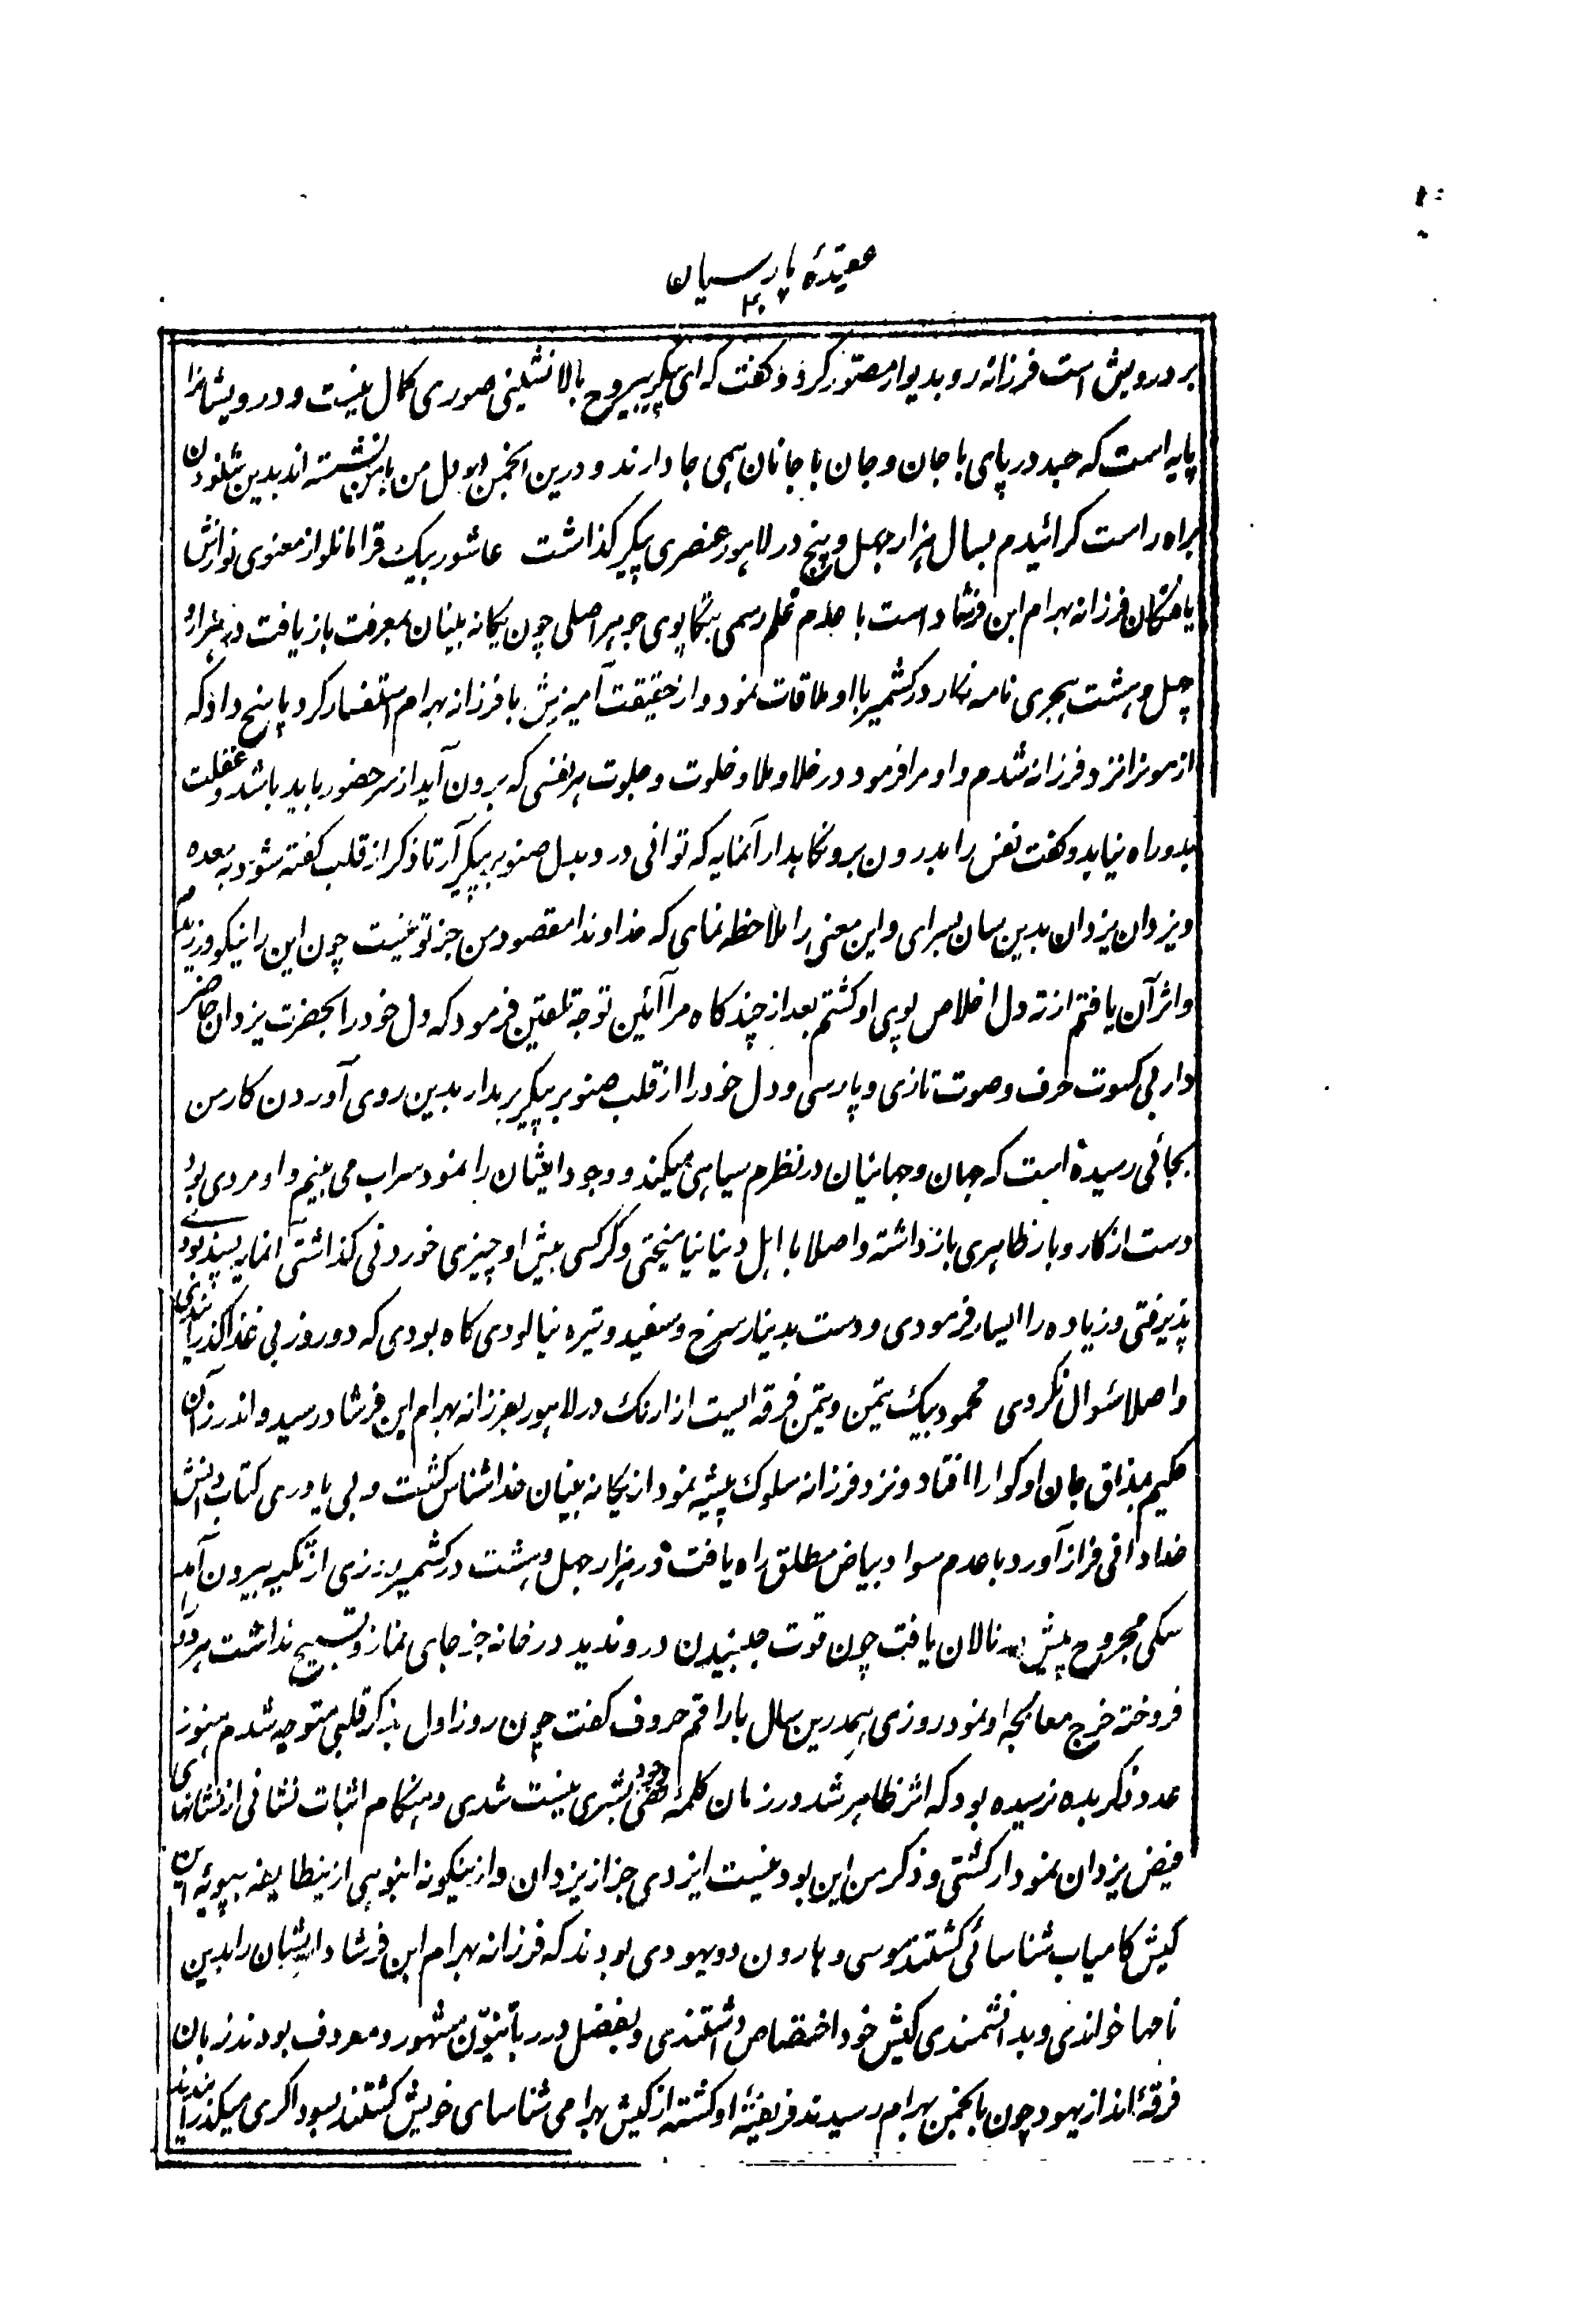 عقیدهٔ پارسیان
۴۰
بر درویش است فرزانه رو بدیوار مصور کرد و کفت که ای پیکر بیروح بالا نشینی صوری کمال نیست و درویشانرا
پایه است که جسد در پای با جان و جان با جانان همی جا دارند و درین انجمن اهل من با من نشسته اند بدین شنودن
براه راست کرائیدم بسال هزار چهل و پنج در لاهور عنصری پیکر کذاشت عاشور بیک قرامانلو از معنوی نوازش
یافتکان فرزانه بهرام ابن فرشاد است با عدم علم رسمی بتکاپوی جوهر اصلی چون یکانه بینان بمعرفت باز یافت در هزار و
چهل و هشت هجری نامه نکار در کشمیر با او ملاقات نمود و از حقیقت آمیزش با فرزانه بهرام استفسار کرد پاسخ داد که
از مونزانزد فرزانه شدم و او مرا فرمود در خلا و ملا و خلوت و جلوت هر نفسی که برون آید از سر حضور باید باشد و غفلت
بدو راه نیابد و کفت نفس را بدرون برو نکاهدار آنمایه که توانی در و بدل صنوبر پیکر آر تا ذکر از قلب کفته شود به معده
و یزدان یزدان بدین سان بسرای و این معنی را ملاحظه نمای که خداوندا مقصود من جز تو نیست چون این را نیکو ورزیدم
و اثر آن یافتم از ته دل اخلاص پوی او کشتم بعد از چند کاه مرا آئین توجه تلقین فرمود که دل خود را بحضرت یزدان حاضر
دار بی کسوت حرف و صوت تازی و پارسی و دل خود را از قلب صنوبر پیکر بردار بدین روی آوردن کار من
بجائی رسیده است که جهان و جهانیان در نظرم سیاهی میکند و وجود ایشان را نمود سراب می بینم و او مردی بود
دست از کار و بار ظاهری باز داشته و اصلا با اهل دنیا نیامیختی و کر کسی پیش او چیزی خوردنی کذاشتی آنمایه پسند بودی
پذیرفتی و زیاده را ایسار فرمودی و دست بدینار سرخ و سفید و تیره نیالودی کاه بودی که دو روز بی غذا کذرانیدی
و اصلا سئوال نکردی محمود بیک یتمن و یتمن فرقه ایست از ارنک در لاهور بفرزانه بهرام ابن فرشاد رسید و اندرز آن
حکیم بمذاق جان او کوارا افتاد و نزد فرزانه سلوک پیشه نمود از یکانه بینان خداشناس کشت و بی یاوری کتاب دانش
خدادانی فراز آورد با عدم سواد بیاض مطلق راه یافت در هزار چهل و هشت در کشمیر روزی از تکیه بیرون آمد
سکی مجروح پیش نالان یافت چون قوت جنبیدن درو ندید در خانه جز جای نماز و تسبیح نداشت هر دو
فروخته خرج معالجه او نمود روزی همدرین سال با راقم حروف کفت چون روز اول بذکر قلبی متوجه شدم هنوز
عدد ذکر بده نرسیده بود که اثر ظاهر شد در زمان کلمهٔ نفی وجود بشری نیست شدی و هنکام اثبات نشانی از نشانهای
فیض یزدان نمودار کشتی و ذکر من این بود نیست ایزدی جز از یزدان و ازینکونه انبوهی ازینطایفه بپویهٔ این
کیش کامیاب شناسائی کشتند موسی و هارون دو یهودی بودند که فرزانه بهرام ابن فرشاد ایشان را بدین
نامها خواندی و بدانشمندی کیش خود اختصاص داشتندی و بفضل در ربانیون مشهور و معروف بودند زبان
فرقهٔ اند از یهود چون بانجمن بهرام رسیدند فریفتهٔ او کشته از کیش بهرامی شناسای خویش کشتند بسوداکری میکذرانیدند